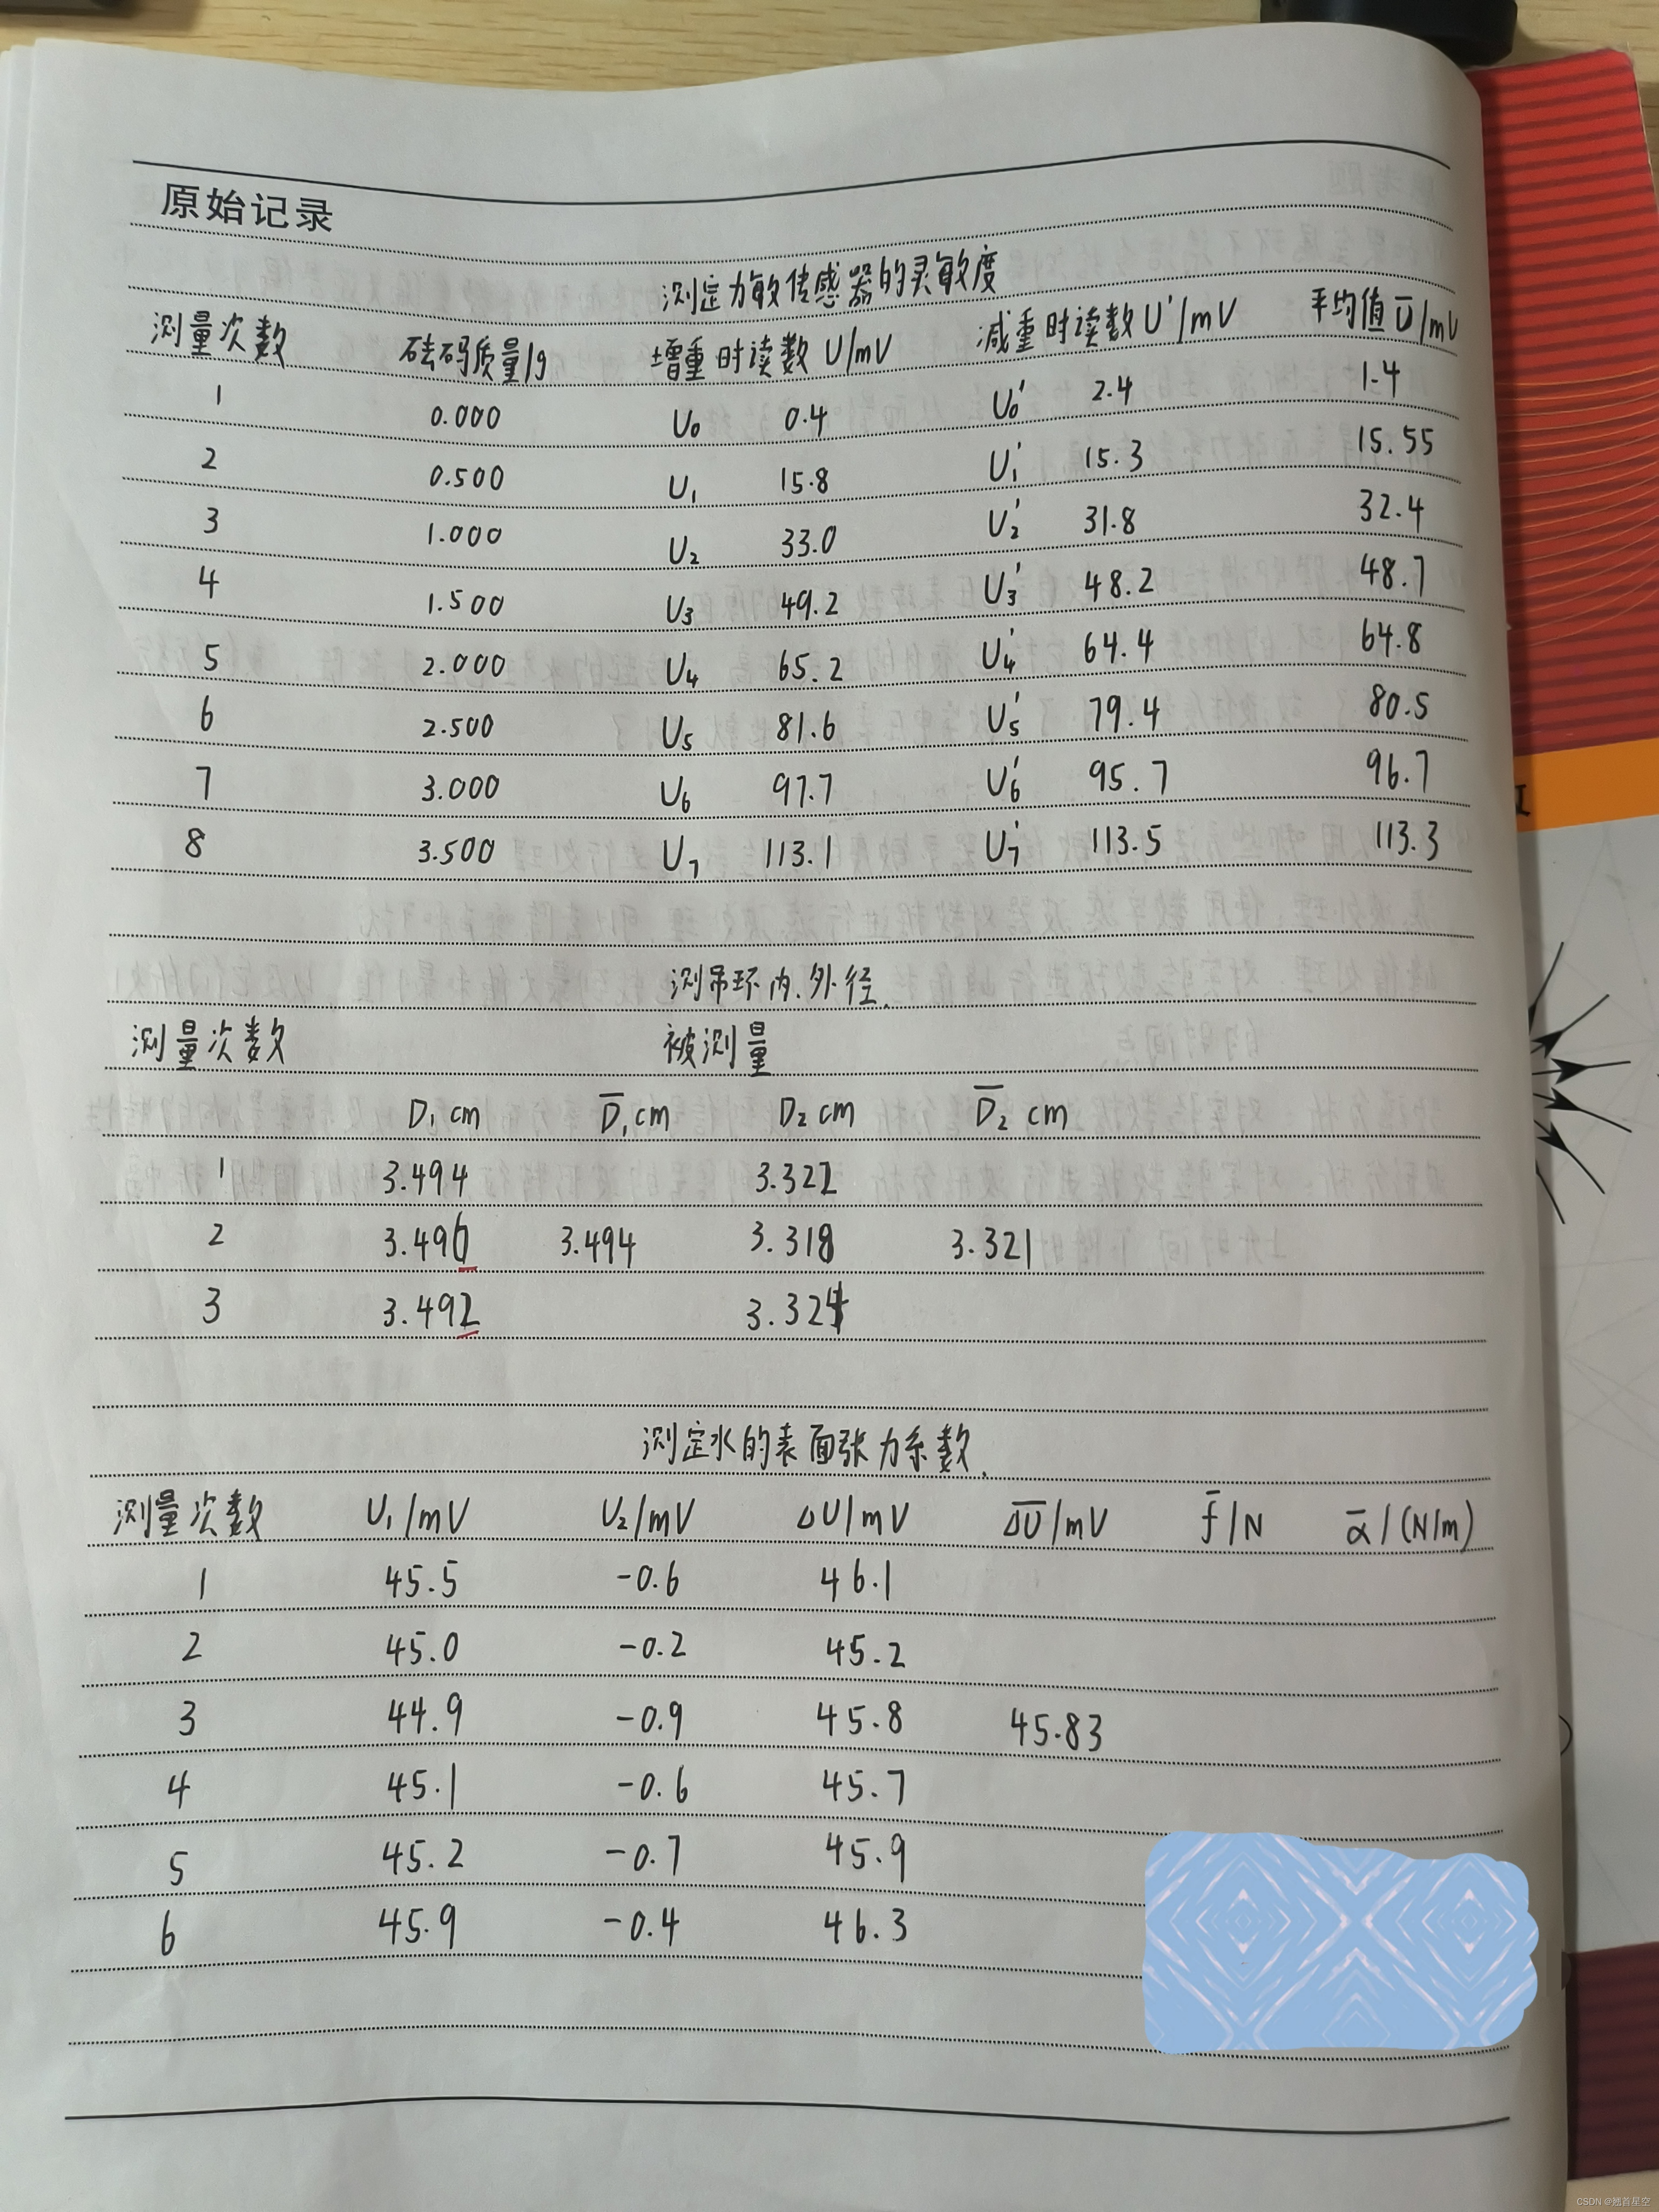 原始记录
测定力敏传感器的灵敏度
测量次数 砝码质量/g 增重时读数 U/mV 减重时读数 U'/mV 平均值 Ū/mV
1 0.000 U₀ 0.4 U₀' 2.4 1.4
2 0.500 U₁ 15.8 U₁' 15.3 15.55
3 1.000 U₂ 33.0 U₂' 31.8 32.4
4 1.500 U₃ 49.2 U₃' 48.2 48.7
5 2.000 U₄ 65.2 U₄' 64.4 64.8
6 2.500 U₅ 81.6 U₅' 79.4 80.5
7 3.000 U₆ 97.7 U₆' 95.7 96.7
8 3.500 U₇ 113.1 U₇' 113.5 113.3
测吊环内、外径.
测量次数 被测量
D₁ cm D̄₁ cm D₂ cm D̄₂ cm
1 3.494 3.322
2 3.496 3.494 3.318 3.321
3 3.492 3.324
测定水的表面张力系数.
测量次数 U₁/mV U₂/mV ΔU/mV Δ̅U̅/mV f̄/N ᾱ/(N/m)
1 45.5 -0.6 46.1
2 45.0 -0.2 45.2
3 44.9 -0.9 45.8 45.83
4 45.1 -0.6 45.7
5 45.2 -0.7 45.9
6 45.9 -0.4 46.3
CSDN @翘首星空